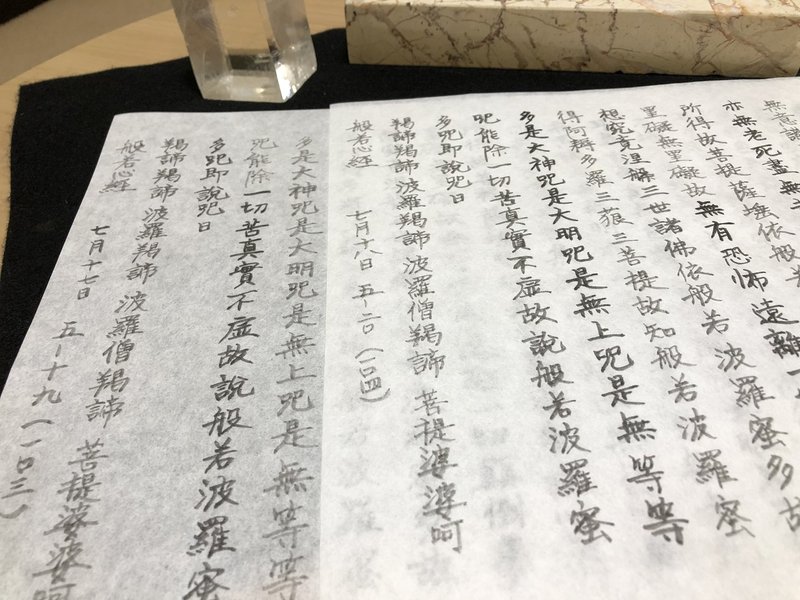 無意識
亦無老死盡無
所得故菩提薩埵依般若
罣礙無罣礙故無有恐怖遠離一
想究竟涅槃三世諸佛依般若波羅蜜多故
得阿耨多羅三藐三菩提故知般若波羅蜜
多是大神咒是大明咒是無上咒是無等等
咒能除一切苦真實不虛故說般若波羅蜜
多咒即說咒曰
羯諦羯諦波羅羯諦波羅僧羯諦菩提婆婆呵
般若心經 七月十八日 五-二〇(一〇四)
多是大神咒是大明咒是無上咒是無等等
咒能除一切苦真實不虛故說般若波羅蜜
多咒即說咒曰
羯諦羯諦波羅羯諦波羅僧羯諦菩提婆婆呵
般若心經 七月十七日 五-十九(一〇三)